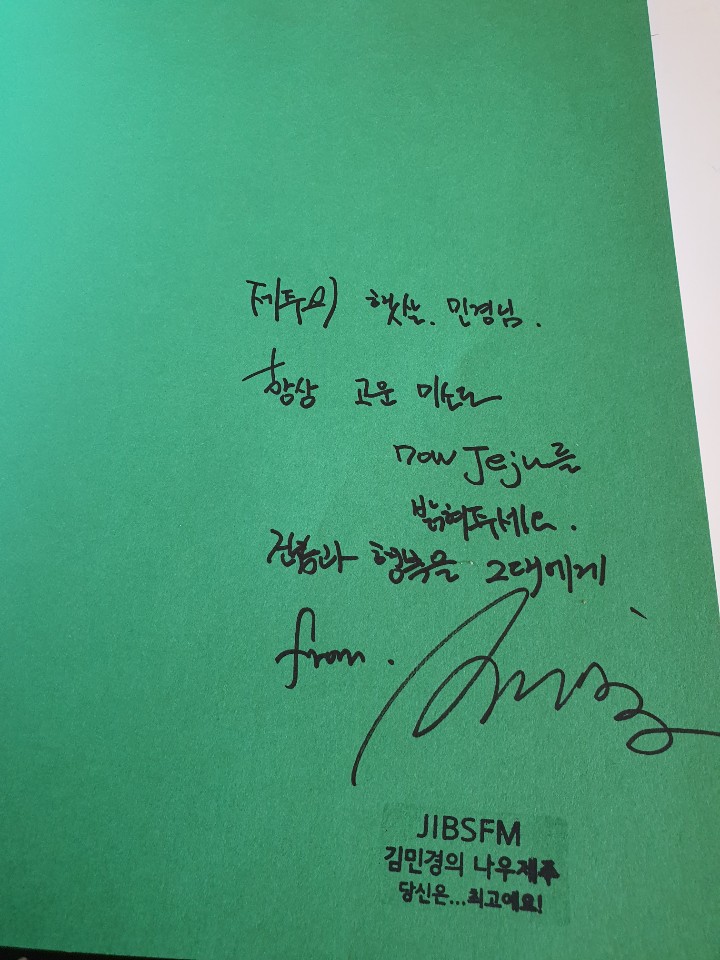 제주의 햇살. 민경님.
항상 고운 미소로
now Jeju를
밝혀주세요.
행복을 그대에게
from.
JIBSFM
김민경의 나우제주
당신은...최고예요!